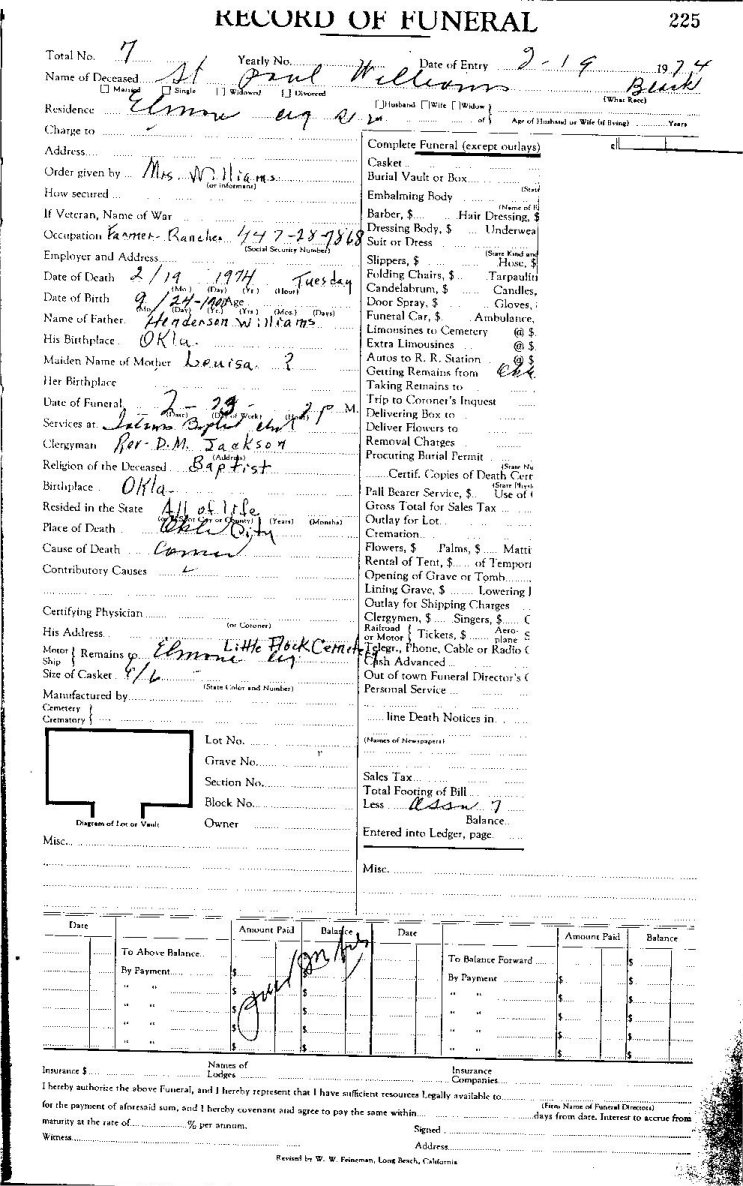 RECORD OF FUNERAL 225
Total No. 7 Yearly No. Date of Entry 2-19 1974
Name of Deceased St Paul Williams Black
Married Single Widowed Divorced (What Race)
Residence Elmore City Husband Wife Widow of Age of Husband or Wife (if living) Years
Charge to
Address
Order given by Mrs. Williams
(or informant)
How secured
If Veteran, Name of War
Occupation Farmer-Rancher 447-28-7868
(Social Security Number)
Employer and Address
Date of Death 2/19 1974 Tuesday
(Mo.) (Day) (Yr.) (Hour)
Date of Birth 9/24-1901 Age
(Mo.) (Day) (Yr.) (Yrs.) (Mos.) (Days)
Name of Father Henderson Williams
His Birthplace Okla.
Maiden Name of Mother Louisa ?
Her Birthplace
Date of Funeral 2-23- 2 P M.
(Date) (Day of Week) (Hour)
Services at Baptist
Clergyman Rev- D.M. Jackson
(Address)
Religion of the Deceased Baptist
Birthplace Okla.
Resided in the State All of life
(or U.S. or City or County) (Years) (Months)
Place of Death Okla City
Cause of Death
Contributory Causes
Certifying Physician
(or Coroner)
His Address
Motor Ship Remains to Elmore City Little Flock Cemet
Size of Casket 6/6
(State Color and Number)
Manufactured by
Cemetery
Crematory
Lot No.
Grave No.
Section No.
Block No.
Diagram of Lot or Vault Owner
Misc.
Complete Funeral (except outlays)
Casket
Burial Vault or Box
(State
Embalming Body
(Name of E
Barber, $ Hair Dressing, $
Dressing Body, $ Underwea
Suit or Dress
(State Kind and
Slippers, $ Hose, $
Folding Chairs, $ Tarpaulin
Candelabrum, $ Candles,
Door Spray, $ Gloves,
Funeral Car, $ Ambulance,
Limousines to Cemetery @ $
Extra Limousines @ $
Autos to R. R. Station @ $
Getting Remains from
Taking Remains to
Trip to Coroner's Inquest
Delivering Box to
Deliver Flowers to
Removal Charges
Procuring Burial Permit
(State Nu
Certif. Copies of Death Cert
(State Phys
Pall Bearer Service, $ Use of
Gross Total for Sales Tax
Outlay for Lot
Cremation
Flowers, $ Palms, $ Matti
Rental of Tent, $ of Tempor
Opening of Grave or Tomb
Lining Grave, $ Lowering
Outlay for Shipping Charges
Clergymen, $ Singers, $
Railroad or Motor Tickets, $ Aero-plane
Telegr., Phone, Cable or Radio
Cash Advanced
Out of town Funeral Director's
Personal Service
line Death Notices in
(Names of Newspapers)
Sales Tax
Total Footing of Bill
Less Assn 7
Balance
Entered into Ledger, page
Misc.
Date Amount Paid Balance Date Amount Paid Balance
To Above Balance To Balance Forward $
By Payment $ $ By Payment $ $
" " $ $ " " $ $
" " $ $ " " $ $
" " $ $ " " $ $
" " $ $ " " $ $
Insurance $ Names of Lodges Insurance Companies
I hereby authorize the above Funeral, and I hereby represent that I have sufficient resources Legally available to
(Firm Name of Funeral Directors)
for the payment of aforesaid sum, and I hereby covenant and agree to pay the same within days from date. Interest to accrue from
maturity at the rate of % per annum. Signed
Witness Address
Revised by W. W. Feineman, Long Beach, California